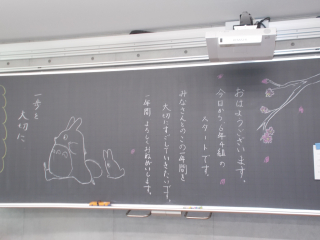 おはようございます。
今日から6年4組の
スタートです。
みなさんとのこの1年間を
大切にすごしていきたいです。
1年間よろしくおねがいします。
一歩を
大切に